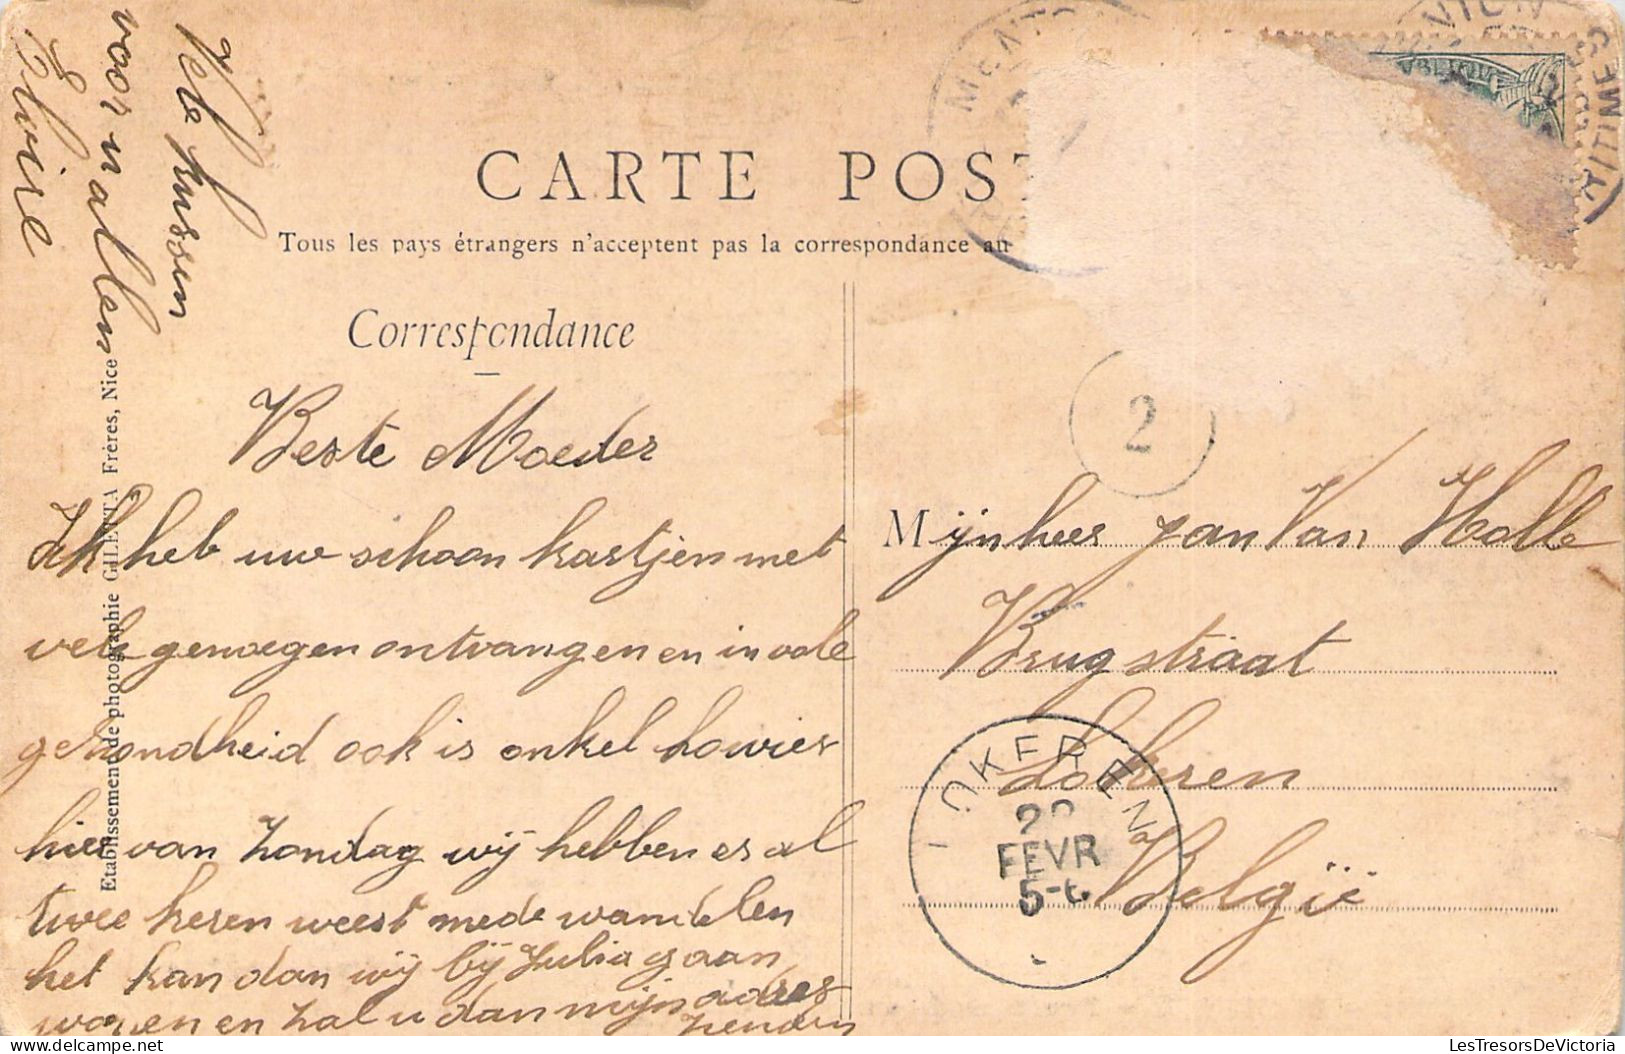 CARTE POST
Tous les pays étrangers n'acceptent pas la correspondance au
Correspondance
Beste Moeder
Ik heb uw schoon kaartjen met
vele genoegen ontvangen en in vole
gezondheid ook is onkel Lowier
hier van Zondag wij hebben er al
twee keren weest mede wandelen
het kan dan wij bij Julia gaan
wonen en zal u dan mijn adres
zenden
Vele kussen
voor u allen
Elvire
Etablissement de photographie GILETTA Frères, Nice
2
Mijnheer Jan Van Holle
Brugstraat
Lokeren
België
LOKEREN
FEVR
5-6
MENTON
LesTresorsDeVictoria